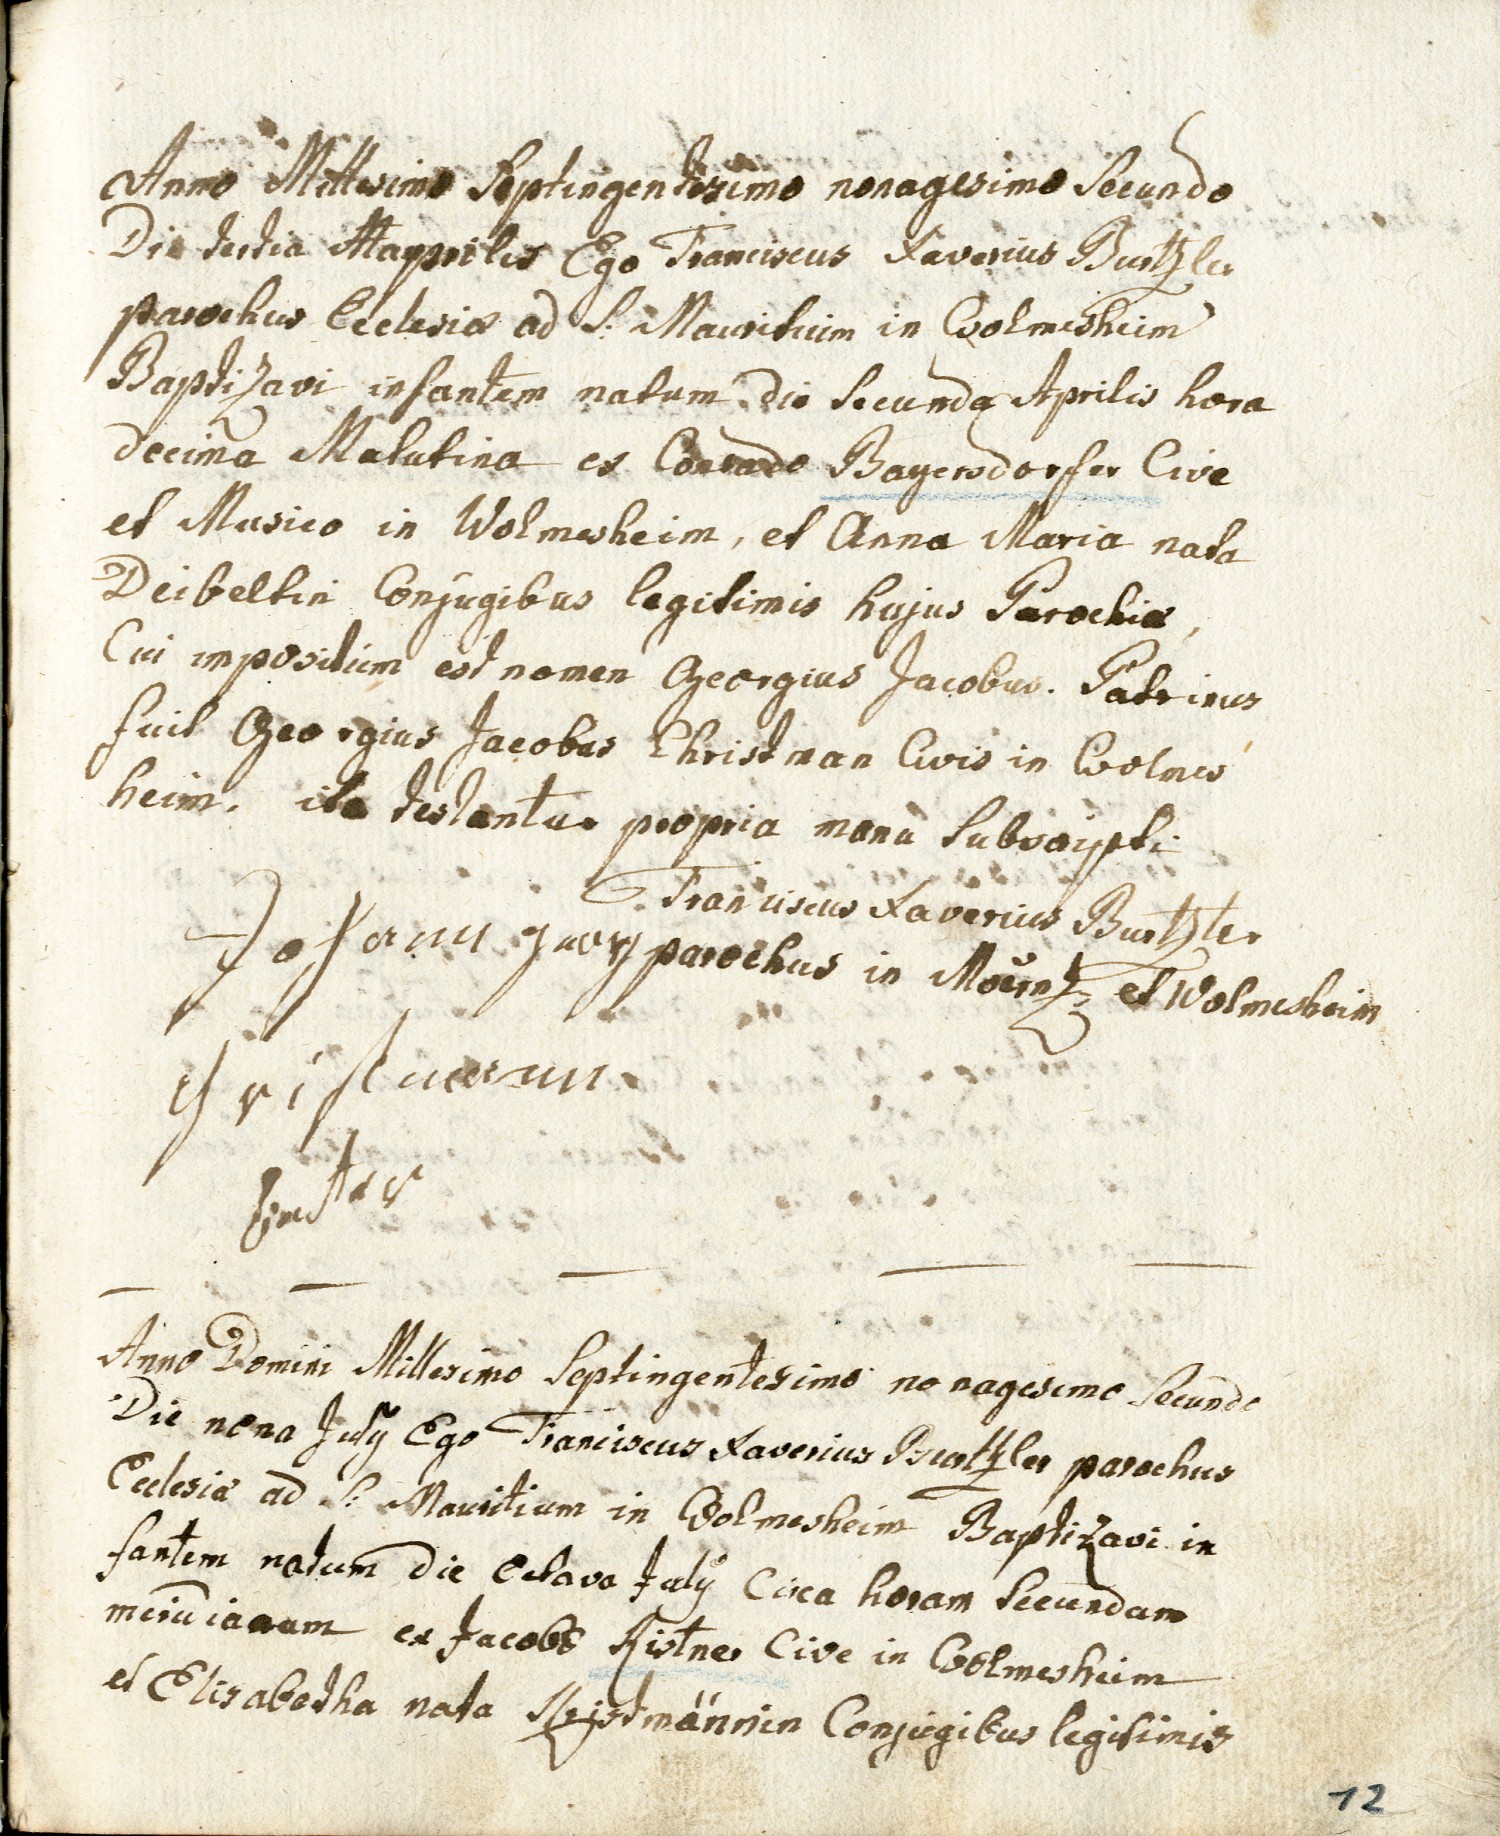 Anno Millesimo Septingentesimo nonagesimo Secundo
Die tertia Aprilis Ego Franciscus Xaverius Burtzler
parochus Ecclesiæ ad S. Mauritium in Wolmesheim
Baptizavi infantem natum die Secunda Aprilis hora
decima Matutina ex Conrado Bayersdorfer Cive
et Musico in Wolmesheim, et Anna Maria nata
Deibeltin Conjugibus legitimis hujus Parochiæ,
Cui impositum est nomen Georgius Jacobus. Patrinus
fuit Georgius Jacobus Christman Civis in Wolmes
heim. ita testantur propria manu Subscripti
Franciscus Xaverius Burtzler
parochus in Mörtz et Wolmesheim
Johann
Anno Domini Millesimo Septingentesimo nonagesimo Secundo
Die nona July Ego Franciscus Xaverius Burtzler parochus
Ecclesiæ ad S. Mauritium in Wolmesheim Baptizavi in
fantem natum Die Octava July Circa horam Secundam
meridianam ex Jacobo Kistner Cive in Wolmesheim
et Elisabetha nata Kristmännin Conjugibus legitimis
12